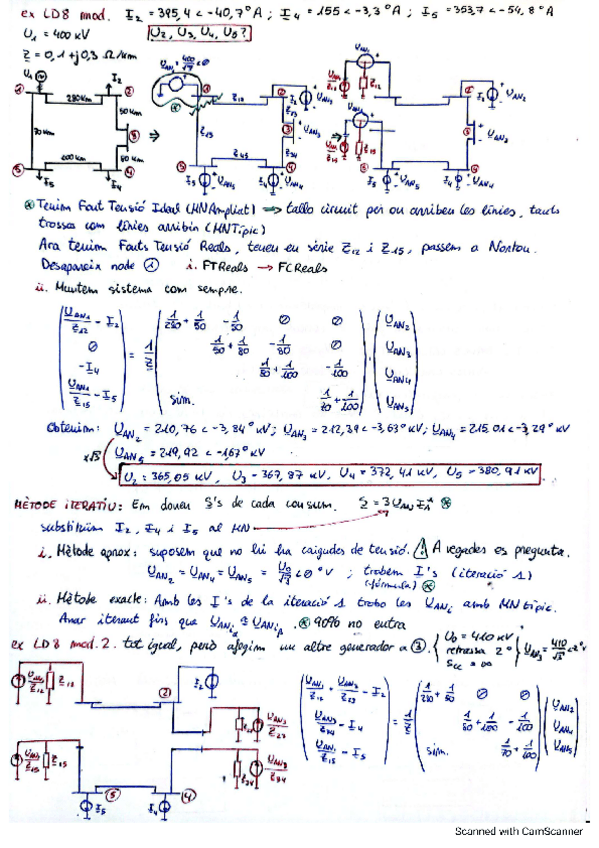 ex LD8 mod. I2 = 395,4 <-40,7° A ; I4 = 155 <-3,3° A ; I5 = 353,7 <-54,8° A
U1 = 400 kV U2, U3, U4, U5?
Z = 0,1 + j0,3 Ω/km
U1 I2 280km 50km 70km 80km 100km I5 I4
① ② ③ ④ ⑤
UAN1 = 400/√3 <0° Z12 Z23 Z15 Z34 Z45 I5 UAN5 I4 UAN4 I2 UAN2 UAN3
UAN1 UAN1/Z12 Z12 UAN1 UAN1/Z15 Z15 I2 UAN2 UAN3 I5 UAN5 I4 UAN4
* Tenim Font Tensió Ideal (MN Ampliat) → tallo circuit per on arriben les línies, tants
trossos com línies arribin (MN Típic)
Ara tenim Fonts Tensió Reals, tenen en sèrie Z12 i Z15, passem a Norton.
Desapareix node ① i. FTReals → FCReals
ii. Muntem sistema com sempre.
UAN1/Z12 - I2 1/280 + 1/50 -1/50 0 0 UAN2
0 1/50 + 1/80 -1/80 0 UAN3
-I4 = 1/Z 1/80 + 1/100 -1/100 UAN4
UAN1/Z15 - I5 sim. 1/70 + 1/100 UAN5
Obtenim: UAN2 = 210,76 <-3,84° kV; UAN3 = 212,39 <-3,63° kV; UAN4 = 215,01 <-3,29° kV
x√3 UAN5 = 219,92 <-1,67° kV
U2 = 365,05 kV, U3 = 367,87 kV, U4 = 372,41 kV, U5 = 380,91 kV
MÈTODE ITERATIU: Em donen S's de cada consum. S = 3 UAN I1* *
substituïm I2, I4 i I5 al MN
i. Mètode aprox: suposem que no hi ha caigudes de tensió. ! A vegades es pregunta.
UAN2 = UAN4 = UAN5 = U0/√3 <0° V ; trobem I's (iteració 1)
(fórmula) *
ii. Mètode exacte: Amb les I's de la iteració 1 trobo les UANi amb MN típic.
Anar iterant fins que * 90% no entra
ex LD8 mod. 2. tot igual, però afegim un altre generador a ③. { U0 = 410 kV
retrassa 2°
Scc = ∞ } UAN3 = 410/√3 <-2° kV
UAN1/Z12 Z12 ② I2 Z23 UAN3/Z23
UAN1/Z15 Z15 ⑤ ④ I5 I4 Z34 UAN3/Z34
UAN1/Z12 + UAN3/Z23 - I2 1/280 + 1/50 0 0 UAN2
UAN3/Z34 - I4 = 1/Z 1/80 + 1/100 -1/100 UAN4
UAN1/Z15 - I5 sim. 1/70 + 1/100 UAN5
Scanned with CamScanner